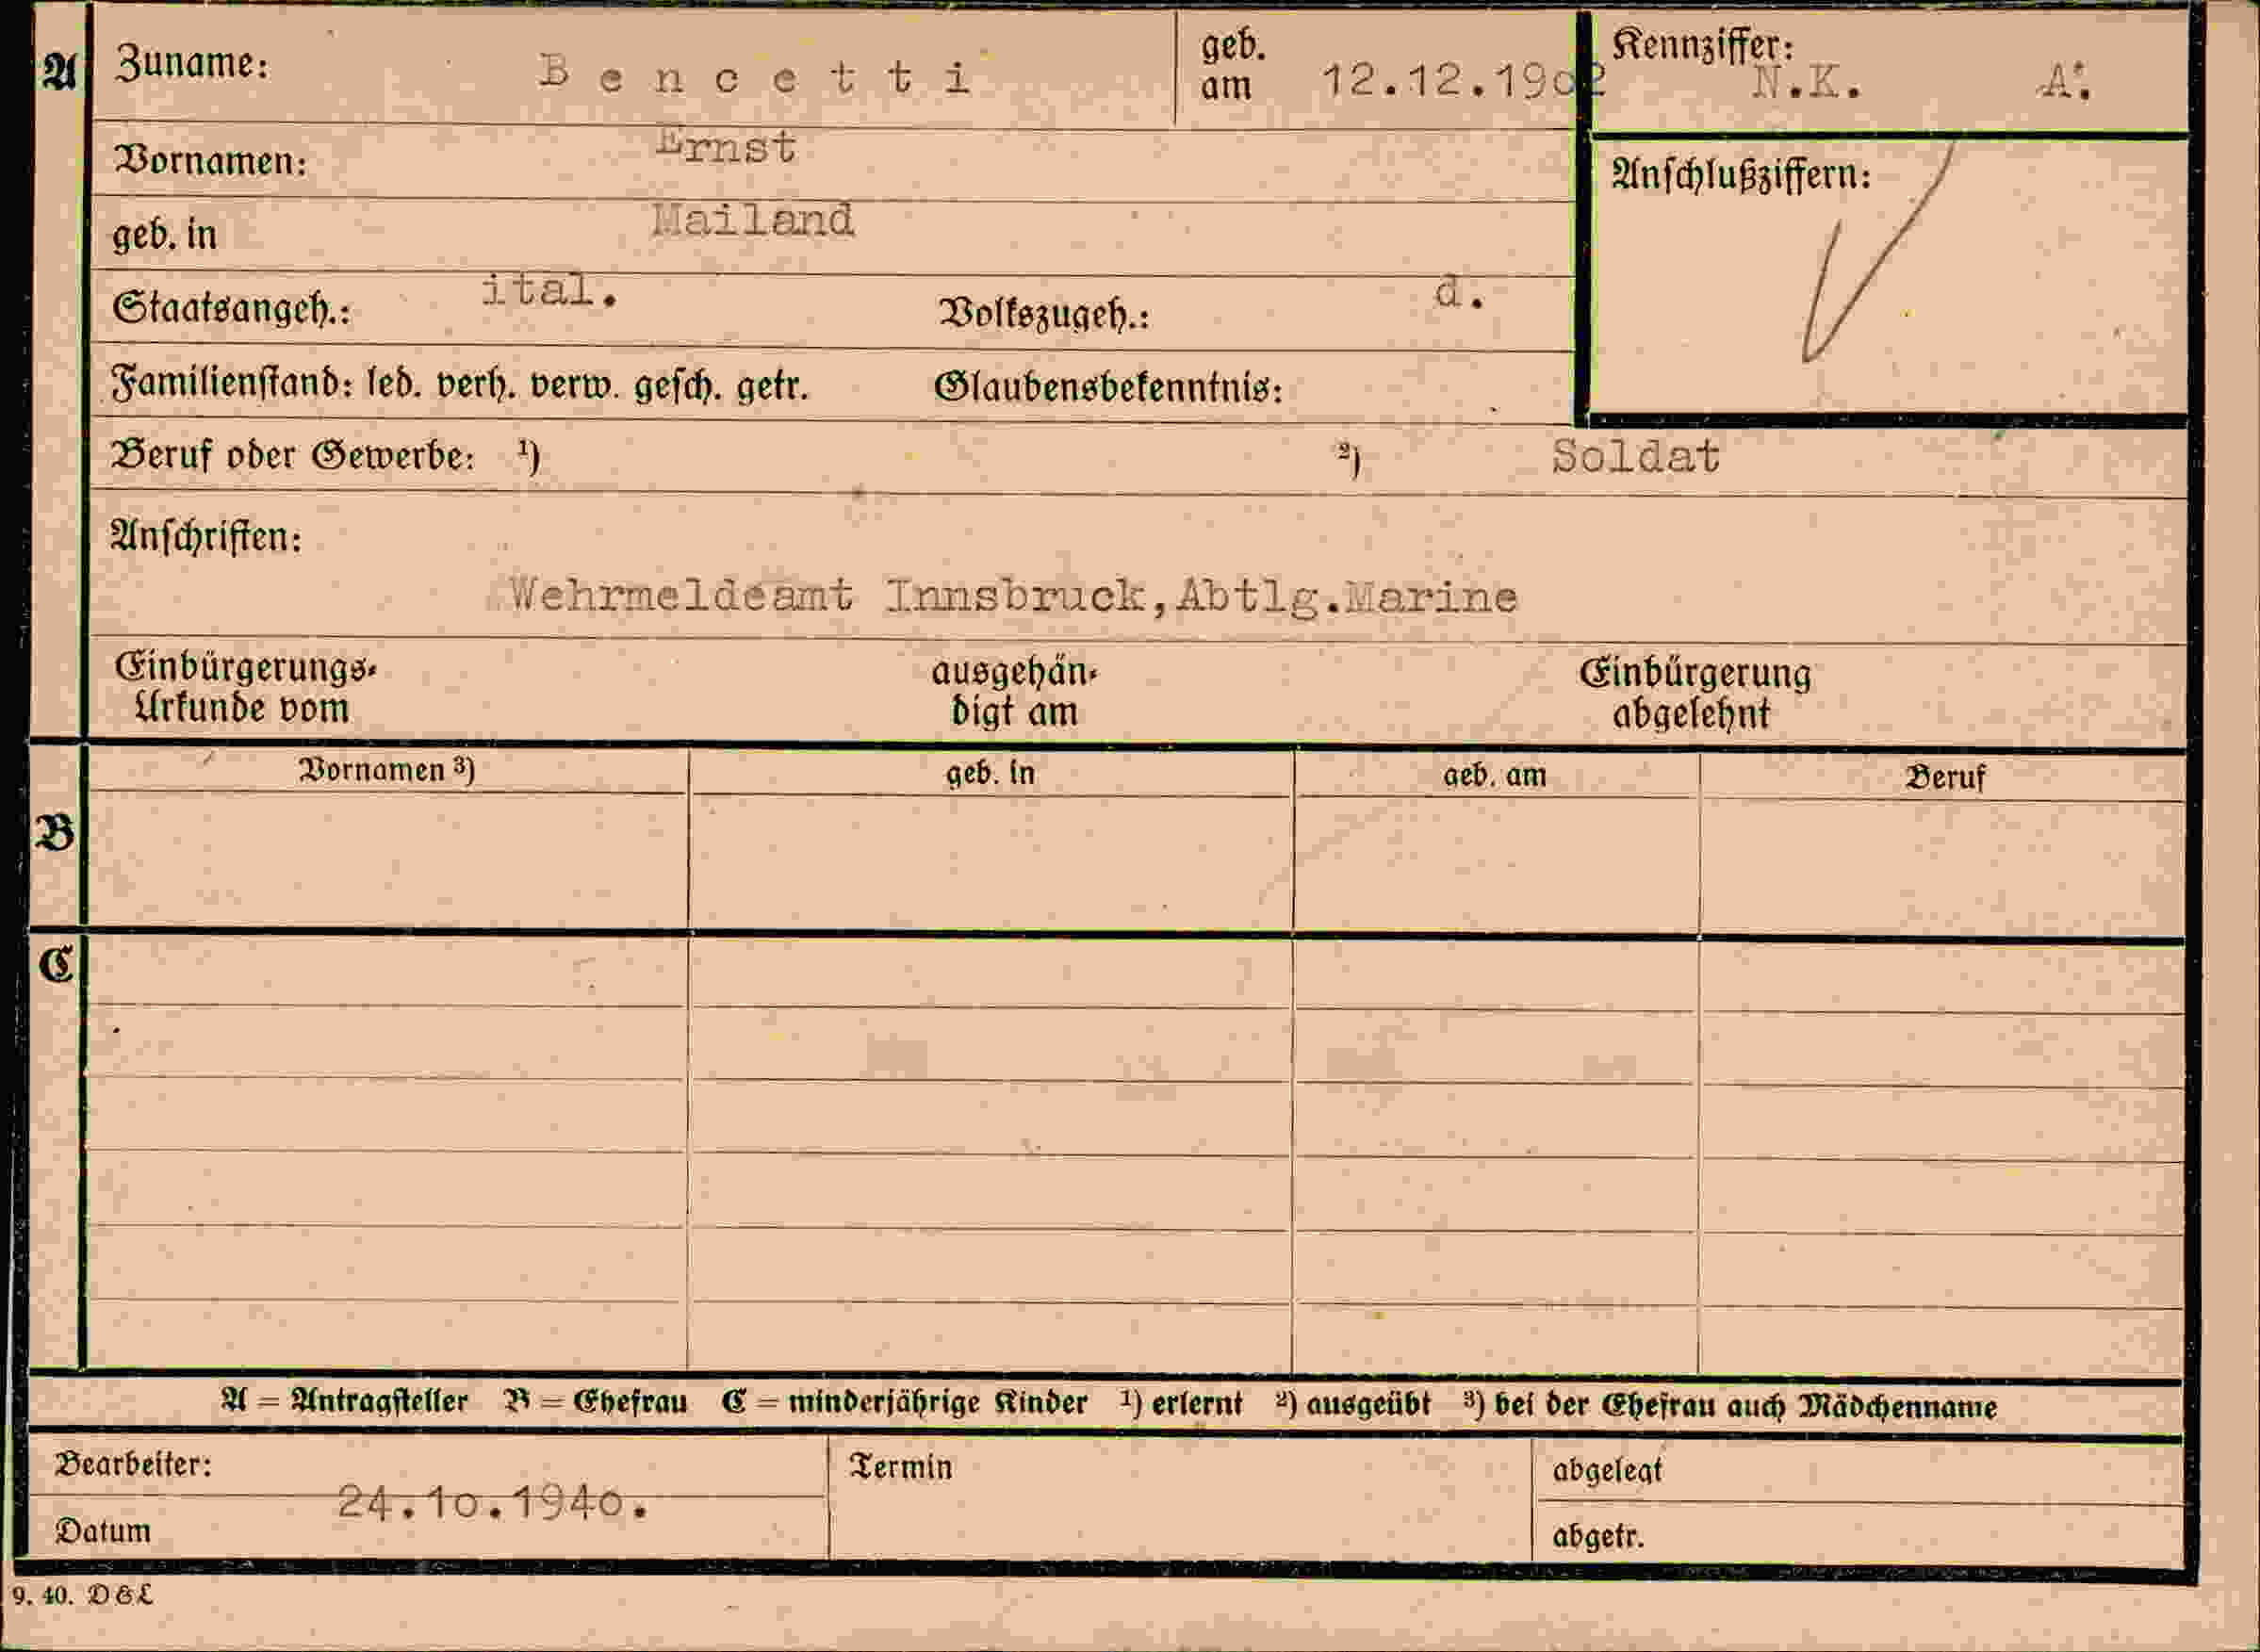 A Zuname: Bencetti geb. am 12.12.1902 Kennziffer: N.K. A:
Vornamen: Ernst
Anschlußziffern:
geb. in Mailand
Staatsangeh.: ital. Volkszugeh.: d.
Familienstand: led. verh. verw. gesch. getr. Glaubensbekenntnis:
Beruf oder Gewerbe: ¹) ²) Soldat
Anschriften:
Wehrmeldeamt Innsbruck,Abtlg.Marine
Einbürgerungs- ausgehän- Einbürgerung
Urkunde vom digt am abgelehnt
Vornamen ³) geb. in geb. am Beruf
B
C
A = Antragsteller B = Ehefrau C = minderjährige Kinder ¹) erlernt ²) ausgeübt ³) bei der Ehefrau auch Mädchenname
Bearbeiter: Termin abgelegt
24.10.1940.
Datum abgetr.
9. 40. D&L